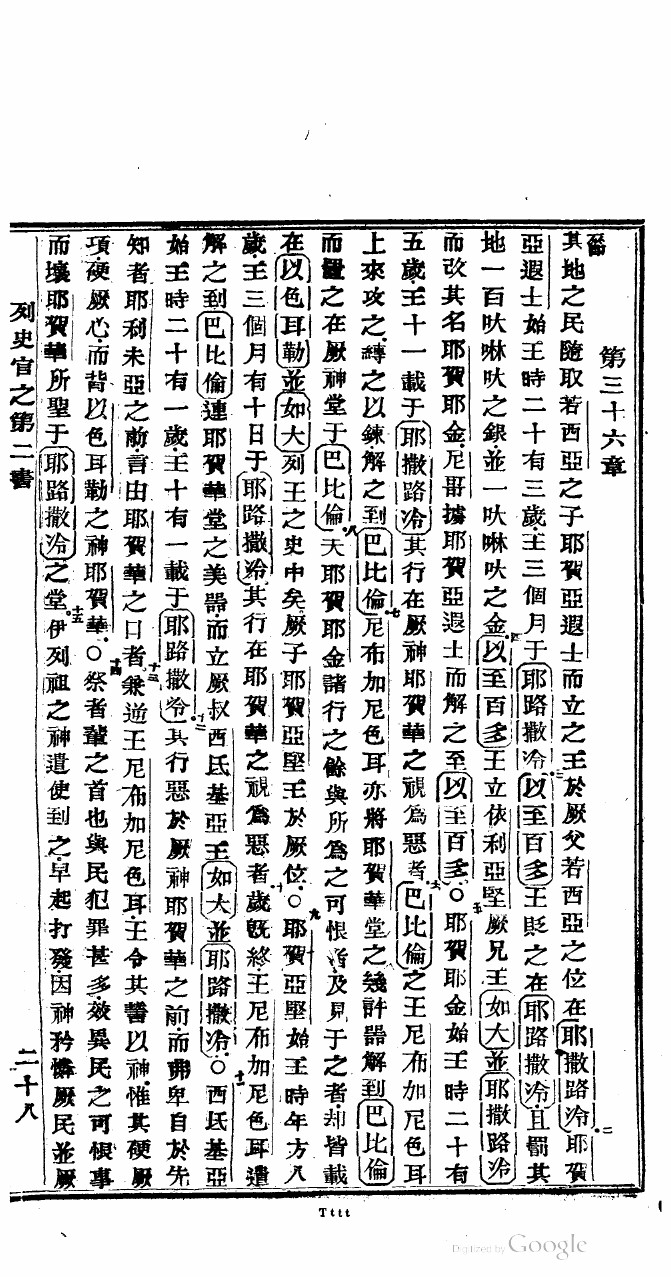 第三十六章
爾
其地之民隨取若西亞之子耶賀亞遐士而立之王於厥父若西亞之位在耶撒路冷耶賀
亞遐士始王時二十有三歲王三個月于耶撒路冷以至百多王貶之在耶路撒冷且罰其
地一百吠啉吠之銀並一吠啉吠之金以至百多王立依利亞堅厥兄王如大並耶撒路冷
而改其名耶賀耶金尼哥據耶賀亞遐士而解之至以至百多○耶賀耶金始王時二十有
五歲王十一載于耶撒路冷其行在厥神耶賀華之視為惡者巴比倫之王尼布加尼色耳
上來攻之縛之以鍊解之到巴比倫尼布加尼色耳亦將耶賀華堂之幾許器解到巴比倫
而置之在厥神堂于巴比倫夫耶賀耶金諸行之餘與所為之可恨者及見于之者却皆載
在以色耳勒並如大列王之史中矣厥子耶賀亞堅王於厥位○耶賀亞堅始王時年方八
歲王三個月有十日于耶路撒冷其行在耶賀華之視為惡者歲旣終王尼布加尼色耳遣
解之到巴比倫連耶賀華堂之美器而立厥叔西氐基亞王如大並耶路撒冷○西氐基亞
始王時二十有一歲王十有一載于耶路撒冷其行惡於厥神耶賀華之前而弗卑自於先
知者耶利未亞之前言由耶賀華之口者兼逆王尼布加尼色耳王令其誓以神惟其硬厥
項硬厥心而背以色耳勒之神耶賀華○祭者輩之首也與民犯罪甚多效異民之可恨事
而壞耶賀華所聖于耶路撒冷之堂伊列祖之神遣使到之早起打發因神矜憐厥民並厥
列史官之第二書
二十八
二
三
四
五
六
七
八
九
十
十一
十二
十三
十四
十五
Tttt
Digitized by Google